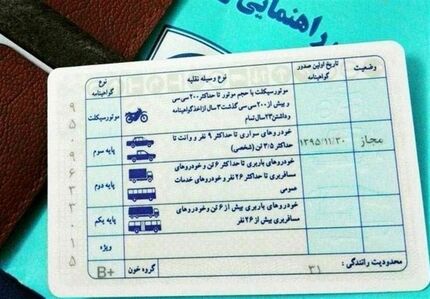 راهنمایی
وضعیت
تاریخ اولین صدور گواهینامه
نوع وسیله نقلیه
نوع گواهینامه
موتورسیکلت با حجم موتور تا حداکثر ۲۰۰ سی سی
و بیش از ۲۰۰ سی سی گذشت ۳ سال از اخذ گواهینامه
وداشتن ۲۳ سال تمام
موتورسیکلت
خودروهای سواری تا حداکثر ۹ نفر و وانت تا
حداکثر ۳/۵ تن (شخصی)
پایه سوم
۱۳۹۵/۱۱/۳۰
مجاز
خودروهای باربری تا حداکثر ۶ تن و خودروهای
مسافربری تا حداکثر ۲۶ نفر و خودروهای خدمات
عمومی
پایه دوم
خودروهای باربری بیش از ۶ تن و خودروهای
مسافربری بیش از ۲۶ نفر
پایه یکم
ویژه
محدودیت رانندگی :
۳۱
گروه خون :
B+